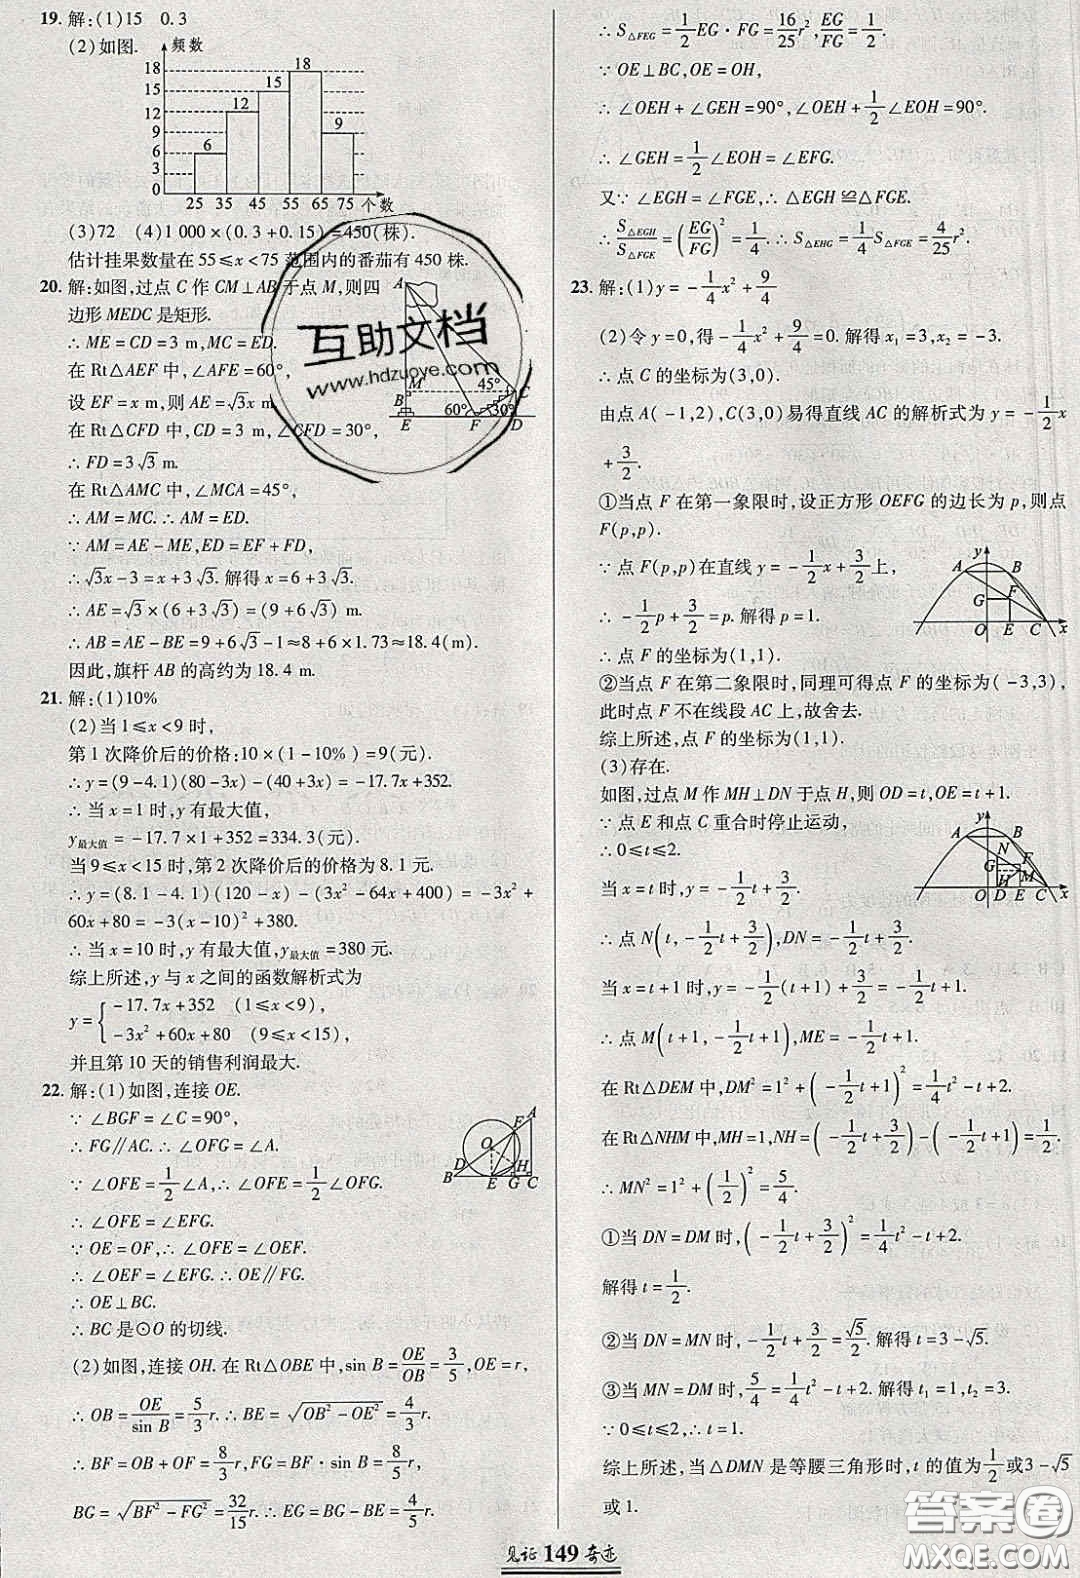 19. 解:(1)15 0.3
(2)如图.
频数
18
15
12
9
6
3
0
6
12
15
18
9
25 35 45 55 65 75 个数
(3)72 (4)1 000×(0.3+0.15)=450(株).
估计挂果数量在 55≤x<75 范围内的番茄有 450 株.
20. 解:如图,过点 C 作 CM⊥AB 于点 M,则四
边形 MEDC 是矩形.
∴ME=CD=3 m,MC=ED.
在 Rt△AEF 中,∠AFE=60°,
设 EF=x m,则 AE=√3x m.
在 Rt△CFD 中,CD=3 m,∠CFD=30°,
∴FD=3√3 m.
在 Rt△AMC 中,∠MCA=45°,
∴AM=MC. ∴AM=ED.
∵AM=AE-ME,ED=EF+FD,
∴√3x-3=x+3√3. 解得 x=6+3√3.
∴AE=√3×(6+3√3)=(9+6√3) m.
∴AB=AE-BE=9+6√3-1≈8+6×1.73≈18.4(m).
因此,旗杆 AB 的高约为 18.4 m.
A
M
45°
C
B
60°
30°
E F D
21. 解:(1)10%
(2)当 1≤x<9 时,
第 1 次降价后的价格:10×(1-10%)=9(元).
∴y=(9-4.1)(80-3x)-(40+3x)=-17.7x+352.
∴当 x=1 时,y 有最大值,
y最大值=-17.7×1+352=334.3(元).
当 9≤x<15 时,第 2 次降价后的价格为 8.1 元.
∴y=(8.1-4.1)(120-x)-(3x²-64x+400)=-3x²+
60x+80=-3(x-10)²+380.
∴当 x=10 时,y 有最大值,y最大值=380 元.
综上所述,y 与 x 之间的函数解析式为
y={-17.7x+352 (1≤x<9),
-3x²+60x+80 (9≤x<15),
并且第 10 天的销售利润最大.
22. 解:(1)如图,连接 OE.
∵∠BGF=∠C=90°,
∴FG∥AC. ∴∠OFG=∠A.
∵∠OFE=1/2∠A,∴∠OFE=1/2∠OFG.
∴∠OFE=∠EFG.
∵OE=OF,∴∠OFE=∠OEF.
∴∠OEF=∠EFG. ∴OE∥FG.
∴OE⊥BC.
∴BC 是⊙O 的切线.
A
F
O
D H
B E G C
(2)如图,连接 OH. 在 Rt△OBE 中,sin B=OE/OB=3/5,OE=r,
∴OB=OE/sin B=5/3r. ∴BE=√(OB²-OE²)=4/3r.
∴BF=OB+OF=8/3r,∴FG=BF·sin B=8/5r.
BG=√(BF²-FG²)=32/15r. ∴EG=BG-BE=4/5r,
∴S△FEG=1/2EG·FG=16/25r²,EG/FG=1/2.
∵OE⊥BC,OE=OH,
∴∠OEH+∠GEH=90°,∠OEH+1/2∠EOH=90°.
∴∠GEH=1/2∠EOH=∠EFG.
又∵∠EGH=∠FGE,∴△EGH∽△FGE.
∴S△EGH/S△FGE=(EG/FG)²=1/4. ∴S△EHG=1/4S△FGE=4/25r².
23. 解:(1)y=-1/4x²+9/4
(2)令 y=0,得-1/4x²+9/4=0. 解得 x₁=3,x₂=-3.
∴点 C 的坐标为(3,0).
由点 A(-1,2),C(3,0)易得直线 AC 的解析式为 y=-1/2x
+3/2.
①当点 F 在第一象限时,设正方形 OEFG 的边长为 p,则点
F(p,p).
∵点 F(p,p)在直线 y=-1/2x+3/2上,
∴-1/2p+3/2=p. 解得 p=1.
∴点 F 的坐标为(1,1).
y
A B
G F
O E C x
②当点 F 在第二象限时,同理可得点 F 的坐标为(-3,3),
此时点 F 不在线段 AC 上,故舍去.
综上所述,点 F 的坐标为(1,1).
(3)存在.
如图,过点 M 作 MH⊥DN 于点 H,则 OD=t,OE=t+1.
∵点 E 和点 C 重合时停止运动,
∴0≤t≤2.
当 x=t 时,y=-1/2t+3/2.
∴点 N(t,-1/2t+3/2),DN=-1/2t+3/2.
y
A B
N
G F
H M
O D E C x
当 x=t+1 时,y=-1/2(t+1)+3/2=-1/2t+1.
∴点 M(t+1,-1/2t+1),ME=-1/2t+1.
在 Rt△DEM 中,DM²=1²+(-1/2t+1)²=1/4t²-t+2.
在 Rt△NHM 中,MH=1,NH=(-1/2t+3/2)-(-1/2t+1)=1/2.
∴MN²=1²+(1/2)²=5/4.
①当 DN=DM 时,(-1/2t+3/2)²=1/4t²-t+2.
解得 t=1/2.
②当 DN=MN 时,-1/2t+3/2=√5/2. 解得 t=3-√5.
③当 MN=DM 时,5/4=1/4t²-t+2. 解得 t₁=1,t₂=3.
∵0≤t≤2,∴t=1.
综上所述,当△DMN 是等腰三角形时,t 的值为1/2或3-√5
或 1.
见证 149 奇迹
互助文档
www.hdzuoye.com
答案圈
MXQE.COM